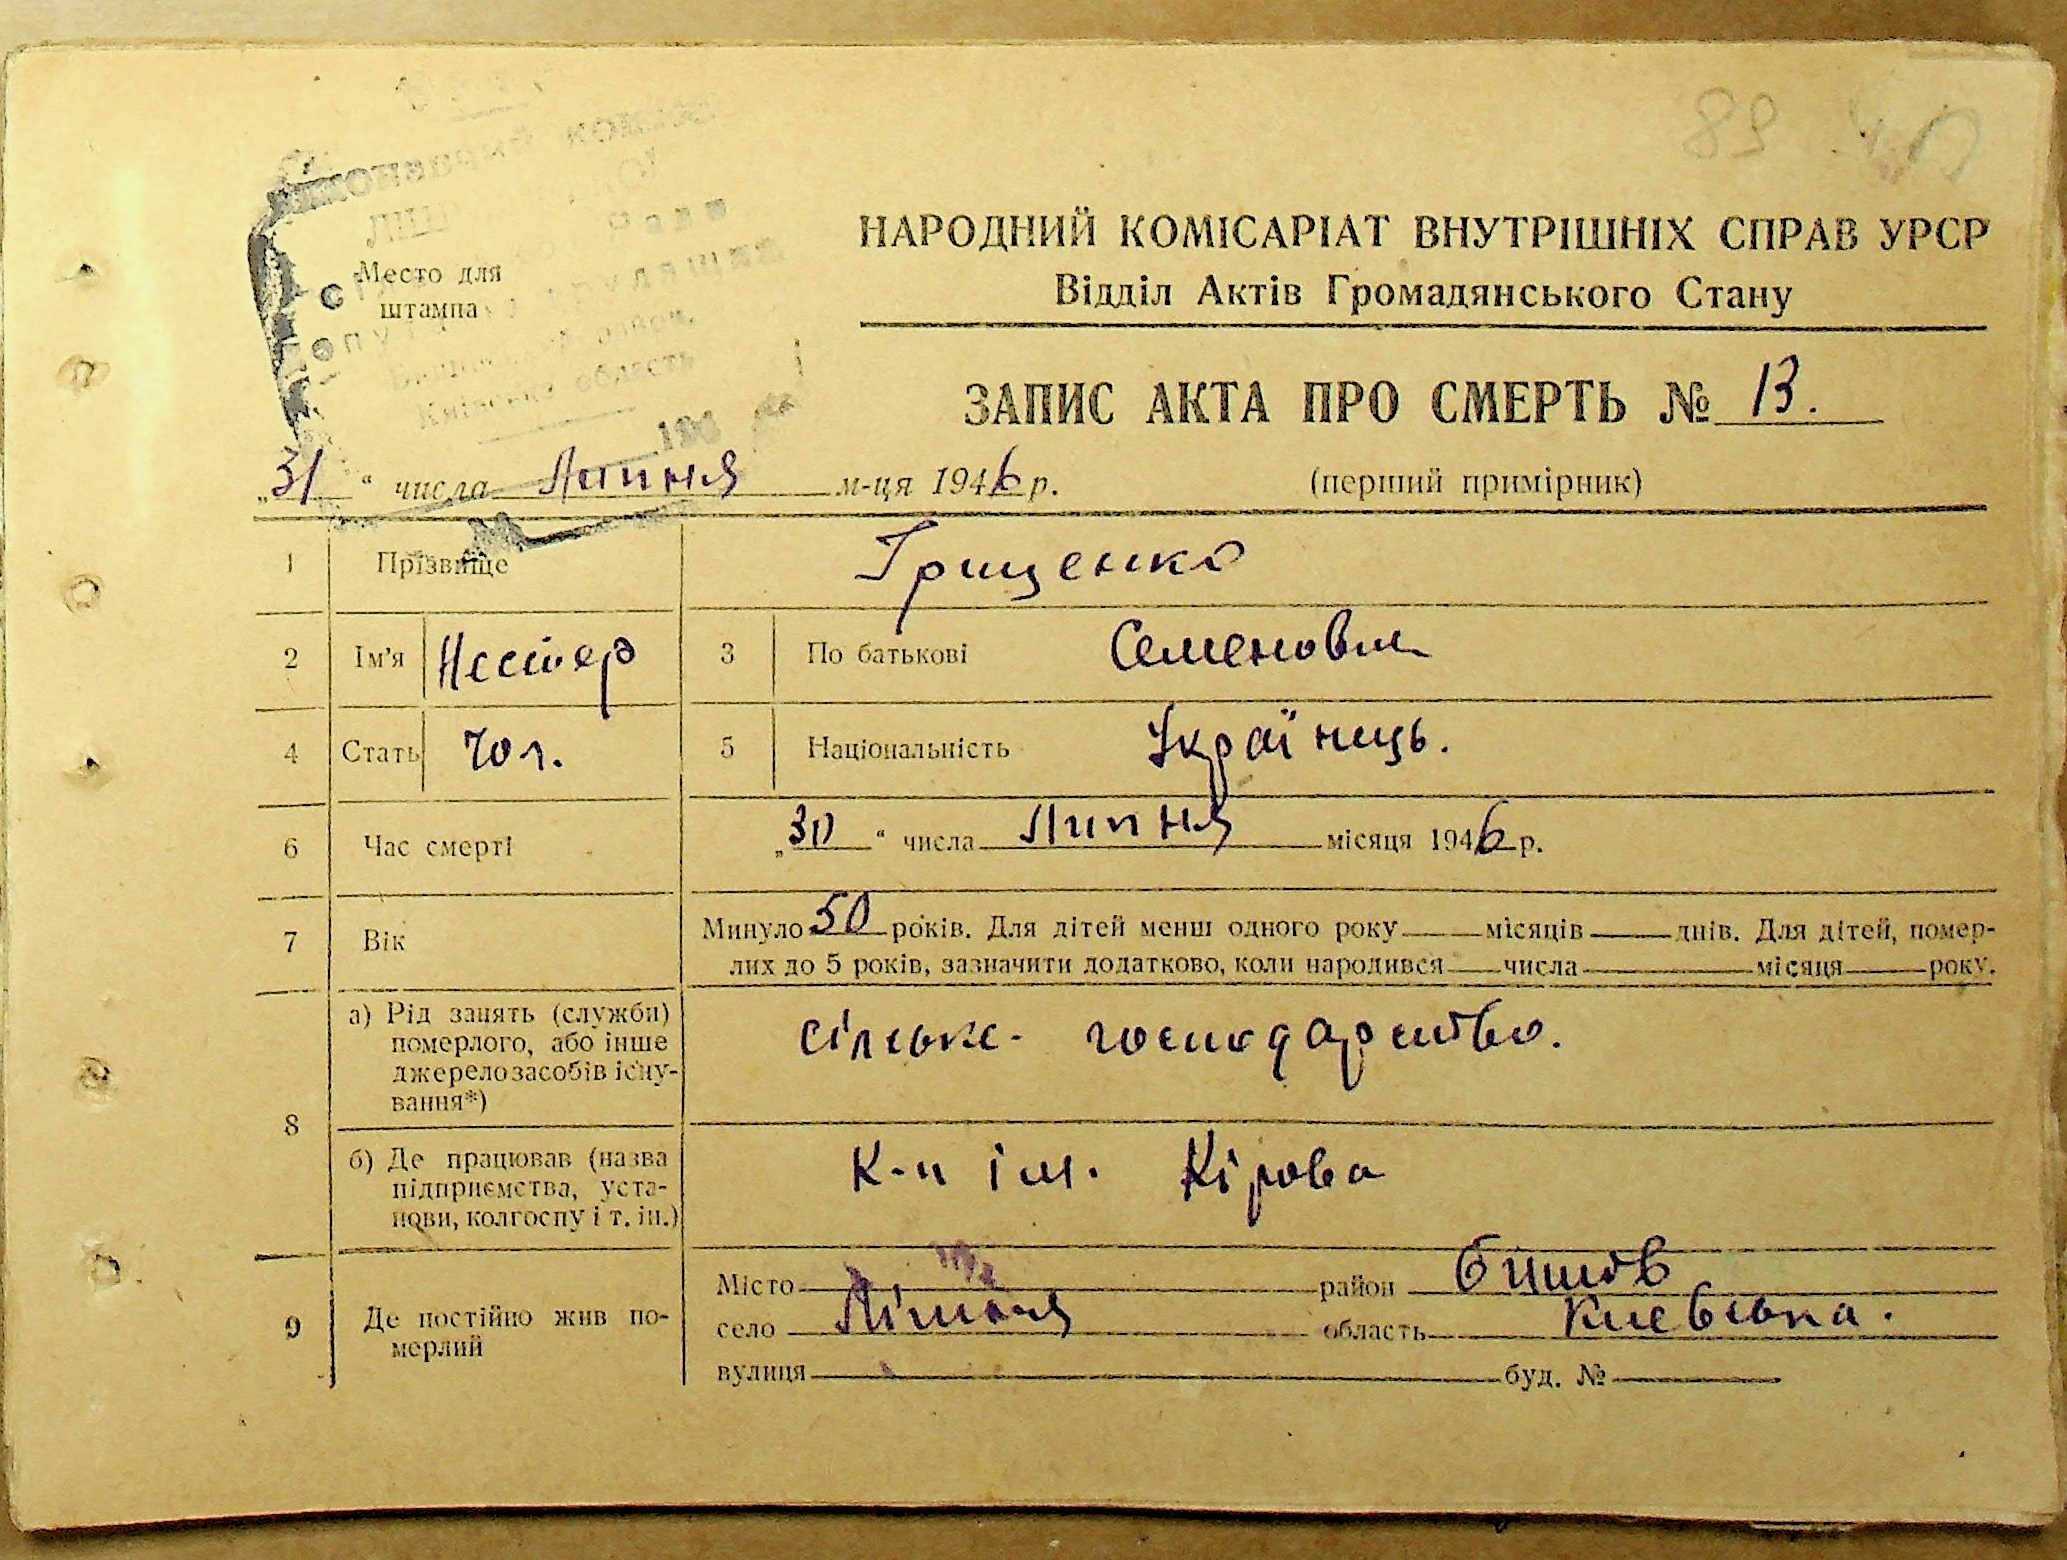 89
НАРОДНИЙ КОМІСАРІАТ ВНУТРІШНІХ СПРАВ УРСР
Відділ Актів Громадянського Стану
Место для
штампа
ЗАПИС АКТА ПРО СМЕРТЬ № 13.
„31“ числа Липня м-ця 1946 р.
(перший примірник)
1 Прізвище Грищенко
2 Ім'я Нестер 3 По батькові Семенович
4 Стать Чол. 5 Національність Українець.
6 Час смерті „30“ числа Липня місяця 1946 р.
7 Вік Минуло 50 років. Для дітей менш одного року місяців днів. Для дітей, помер-
лих до 5 років, зазначити додатково, коли народився числа місяця року.
8 а) Рід занять (служби) померлого, або інше джерело засобів існу-вання*) сільське-господарство.
б) Де працював (назва підприємства, уста-нови, колгоспу і т. ін.) К-п ім. Кірова
9 Де постійно жив по-мерлий
Місто район Бишів
село Лішня область Киевська.
вулиця буд. №